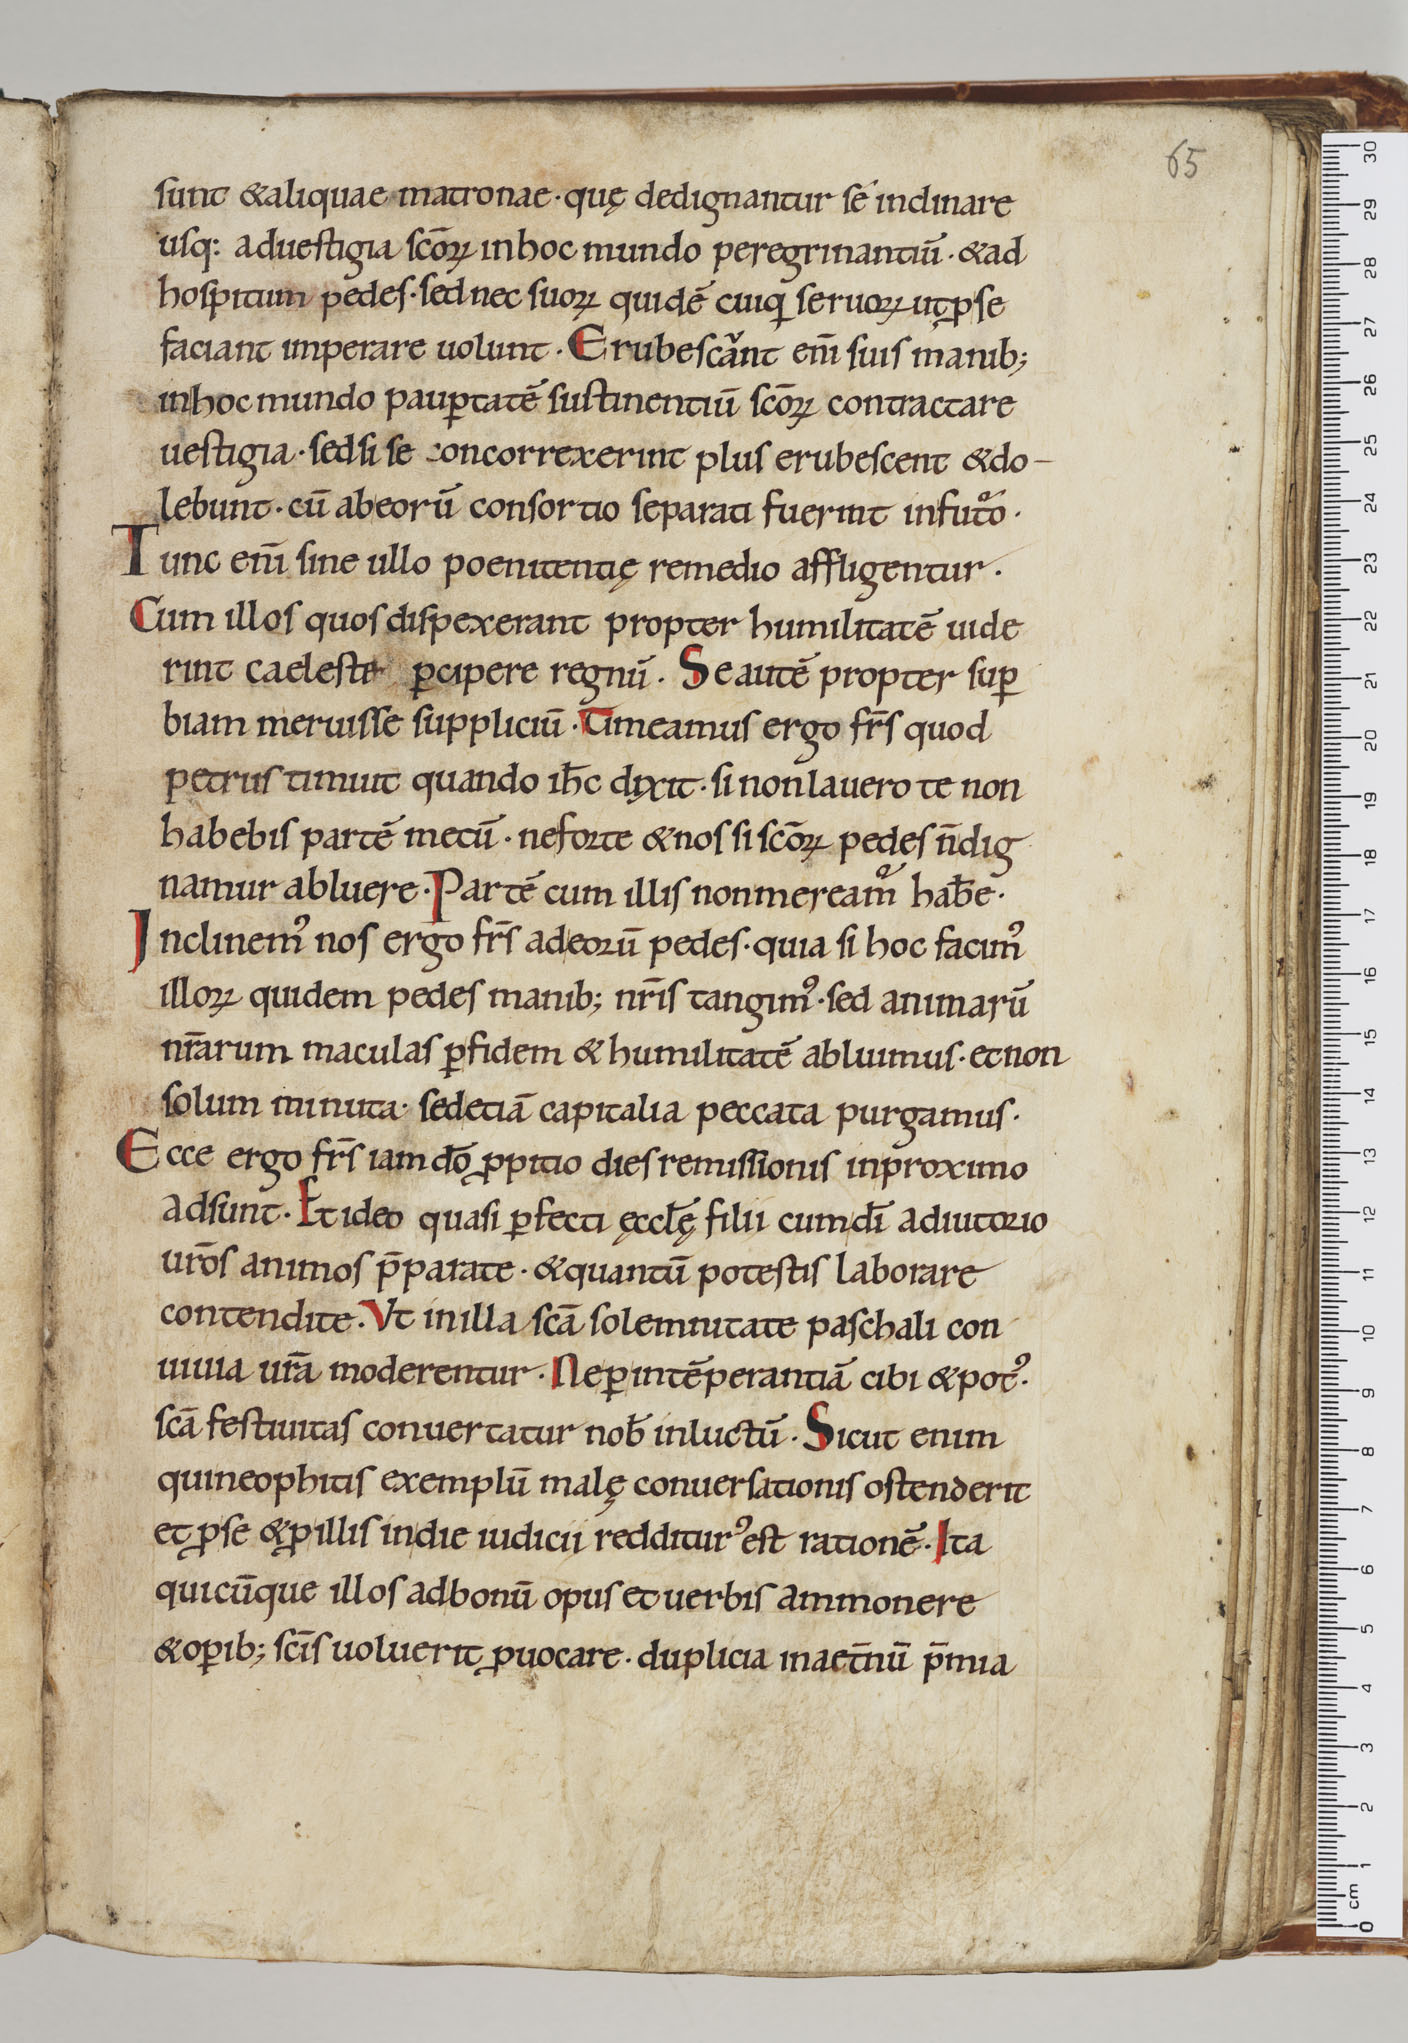 65
sunt &aliquae matronae · quę dedignantur sé inclinare
usq: aduestigia scōꝝ inhoc mundo peregrinantiū · &ad
hospitum pedes · sed nec suoꝝ quidē cuiq seruoꝝ ut ꝑ se
faciant imperare uolunt · Erubescant enī suis manib;
inhoc mundo pauꝑtatē sustinentiū scōꝝ contractare
uestigia · sed si se concorrexerint plus erubescent &do-
lebunt · cū abeorū consortio separati fuerint infuto ·
Tunc enī sine ullo poenitentię remedio affligentur ·
Cum illos quos dispexerant propter humilitatē uide
rint caeleste ꝑcipere regnū · Se autē propter suꝑ
biam meruisse suppliciū · Timeamus ergo fr̄s quod
petrus timuit quando ih̄c dixit · si non lauero te non
habebis partē mecū · neforte &nos si scōꝝ pedes n̄ dig
namur abluere · Partē cum illis non meream᷒ hab̄e ·
Inclinem᷒ nos ergo fr̄s adeorū pedes · quia si hoc facim᷒
illoꝝ quidem pedes manib; nr̄is tangim᷒ · sed animarū
nr̄arum maculas ꝑfidem & humilitatē abluimus · et non
solum minuta · sedetiā capitalia peccata purgamus ·
Ecce ergo fr̄s iam dō ꝓpitio dies remissionis inproximo
adsunt · Et ideo quasi ꝑfecti ęccl̄ę filii cum dī adiutorio
ur̄os animos p̄parate · &quantū potestis laborare
contendite · Ut in illa scā solemnitate paschali con
uiuia ur̄a moderentur · Ne ꝑ intēperantiā cibi & pot᷒ ·
scā festiuitas conuertatur nob̄ inluctū · Sicut enim
qui neophitis exemplū malę conuersationis ostenderit
et ꝓ se &ꝓ illis in die iudicii redditur᷒ est rationē · Ita
quicūque illos adbonū opus et uerbis ammonere
&oꝑib; scīs uoluerit ꝓuocare · duplicia inaet̄nū p̄mia